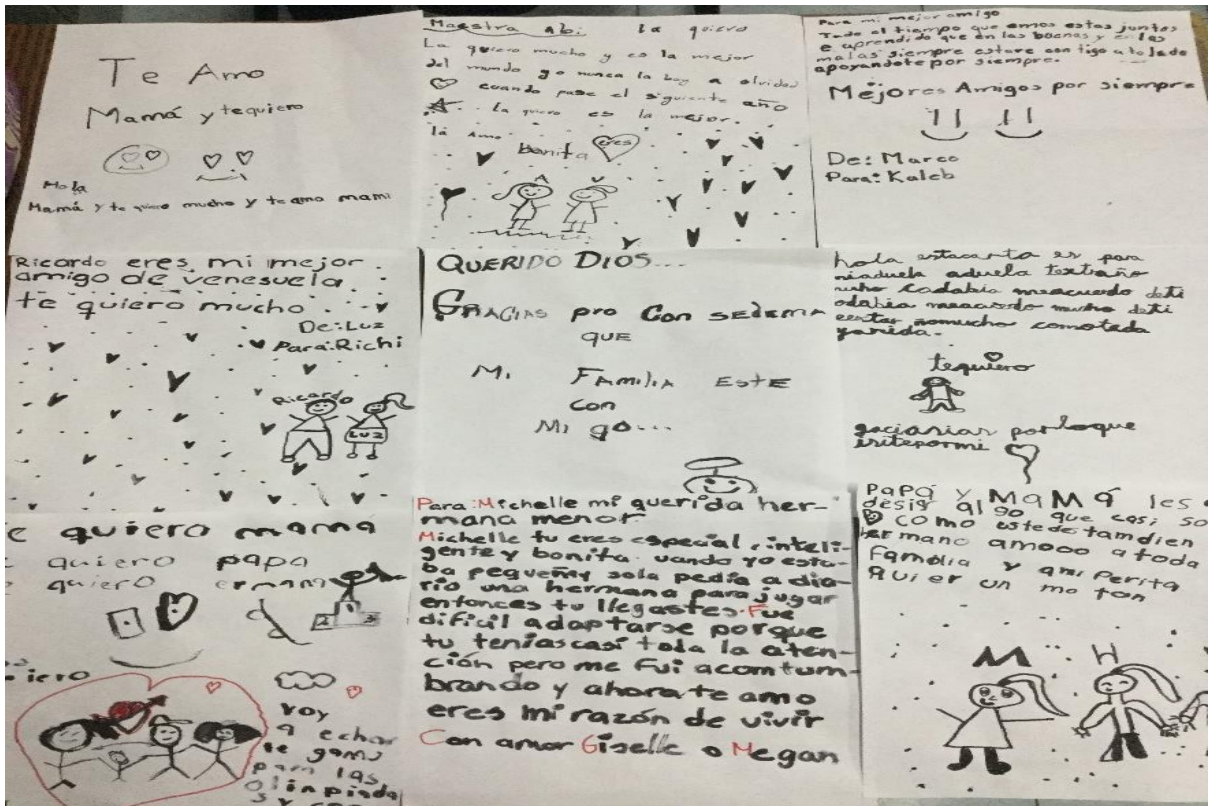 Te Amo
Mamá y te quiero
Hola
Mamá y te quiero mucho y te amo mami
Maestra abi: la quiero
La quiero mucho y es la mejor
del mundo yo nunca la boy a olvidar
cuando pase el siguiente año
la quiero es la mejor.
la amo
bonita eres
Para mi mejor amigo
Todo el tiempo que emos estas juntos
e aprendido que en las buenas y en las
malas siempre estare con tigo a to lado
apoyandote por siempre.
Mejores Amigos por siempre
De: Marco
Para: Kaleb
Ricardo eres mi mejor
amigo de venesuela.
te quiero mucho.
De: Luz
Para: Richi
Ricardo
LUZ
QUERIDO DIOS...
GRACIAS pro Con SEDEMA
QUE
Mi FAMiliA ESTE
Con
Mi go...
hola estacarta es para
miaduela aduela textraño
mucho todabia meacuerdo deti
odabia meacuerdo mucho deti
comotada
tequiero
porloque
isitepormi
e quiero mamá
quiero papa
quiero ermana
iero
voy
a echar
le gana
para las
Olinpiada
Para: Michelle mi querida her-
mana menor
Michelle tu eres especial, inteli-
gente y bonita. uando yo esta-
ba pequeña y sola pedía a dia-
rio una hermana para jugar
entonces tu llegastes. Fue
dificil adaptarse porque
tu tenias casi toda la aten-
ción pero me fui acomtum-
brando y ahora te amo
eres mi razón de vivir
Con amor Giselle o Megan
PaPá y MaMá les
desir algo que casi so
como ustede tamdien
hermano amooo a toda
Familia y ami Perita
Qui er un mo ton
M H